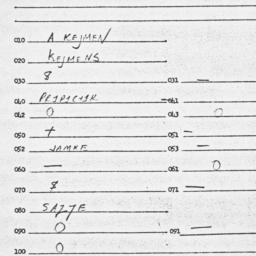 010 A KEJMEN
020 KEJMENS
030 8 031 —
040 041 —
042 0 043 0
050 + 051 =
052 JAMKE 053 —
060 — 061 0
070 8 071 —
080 SAJJE
090 0 091 —
100 0